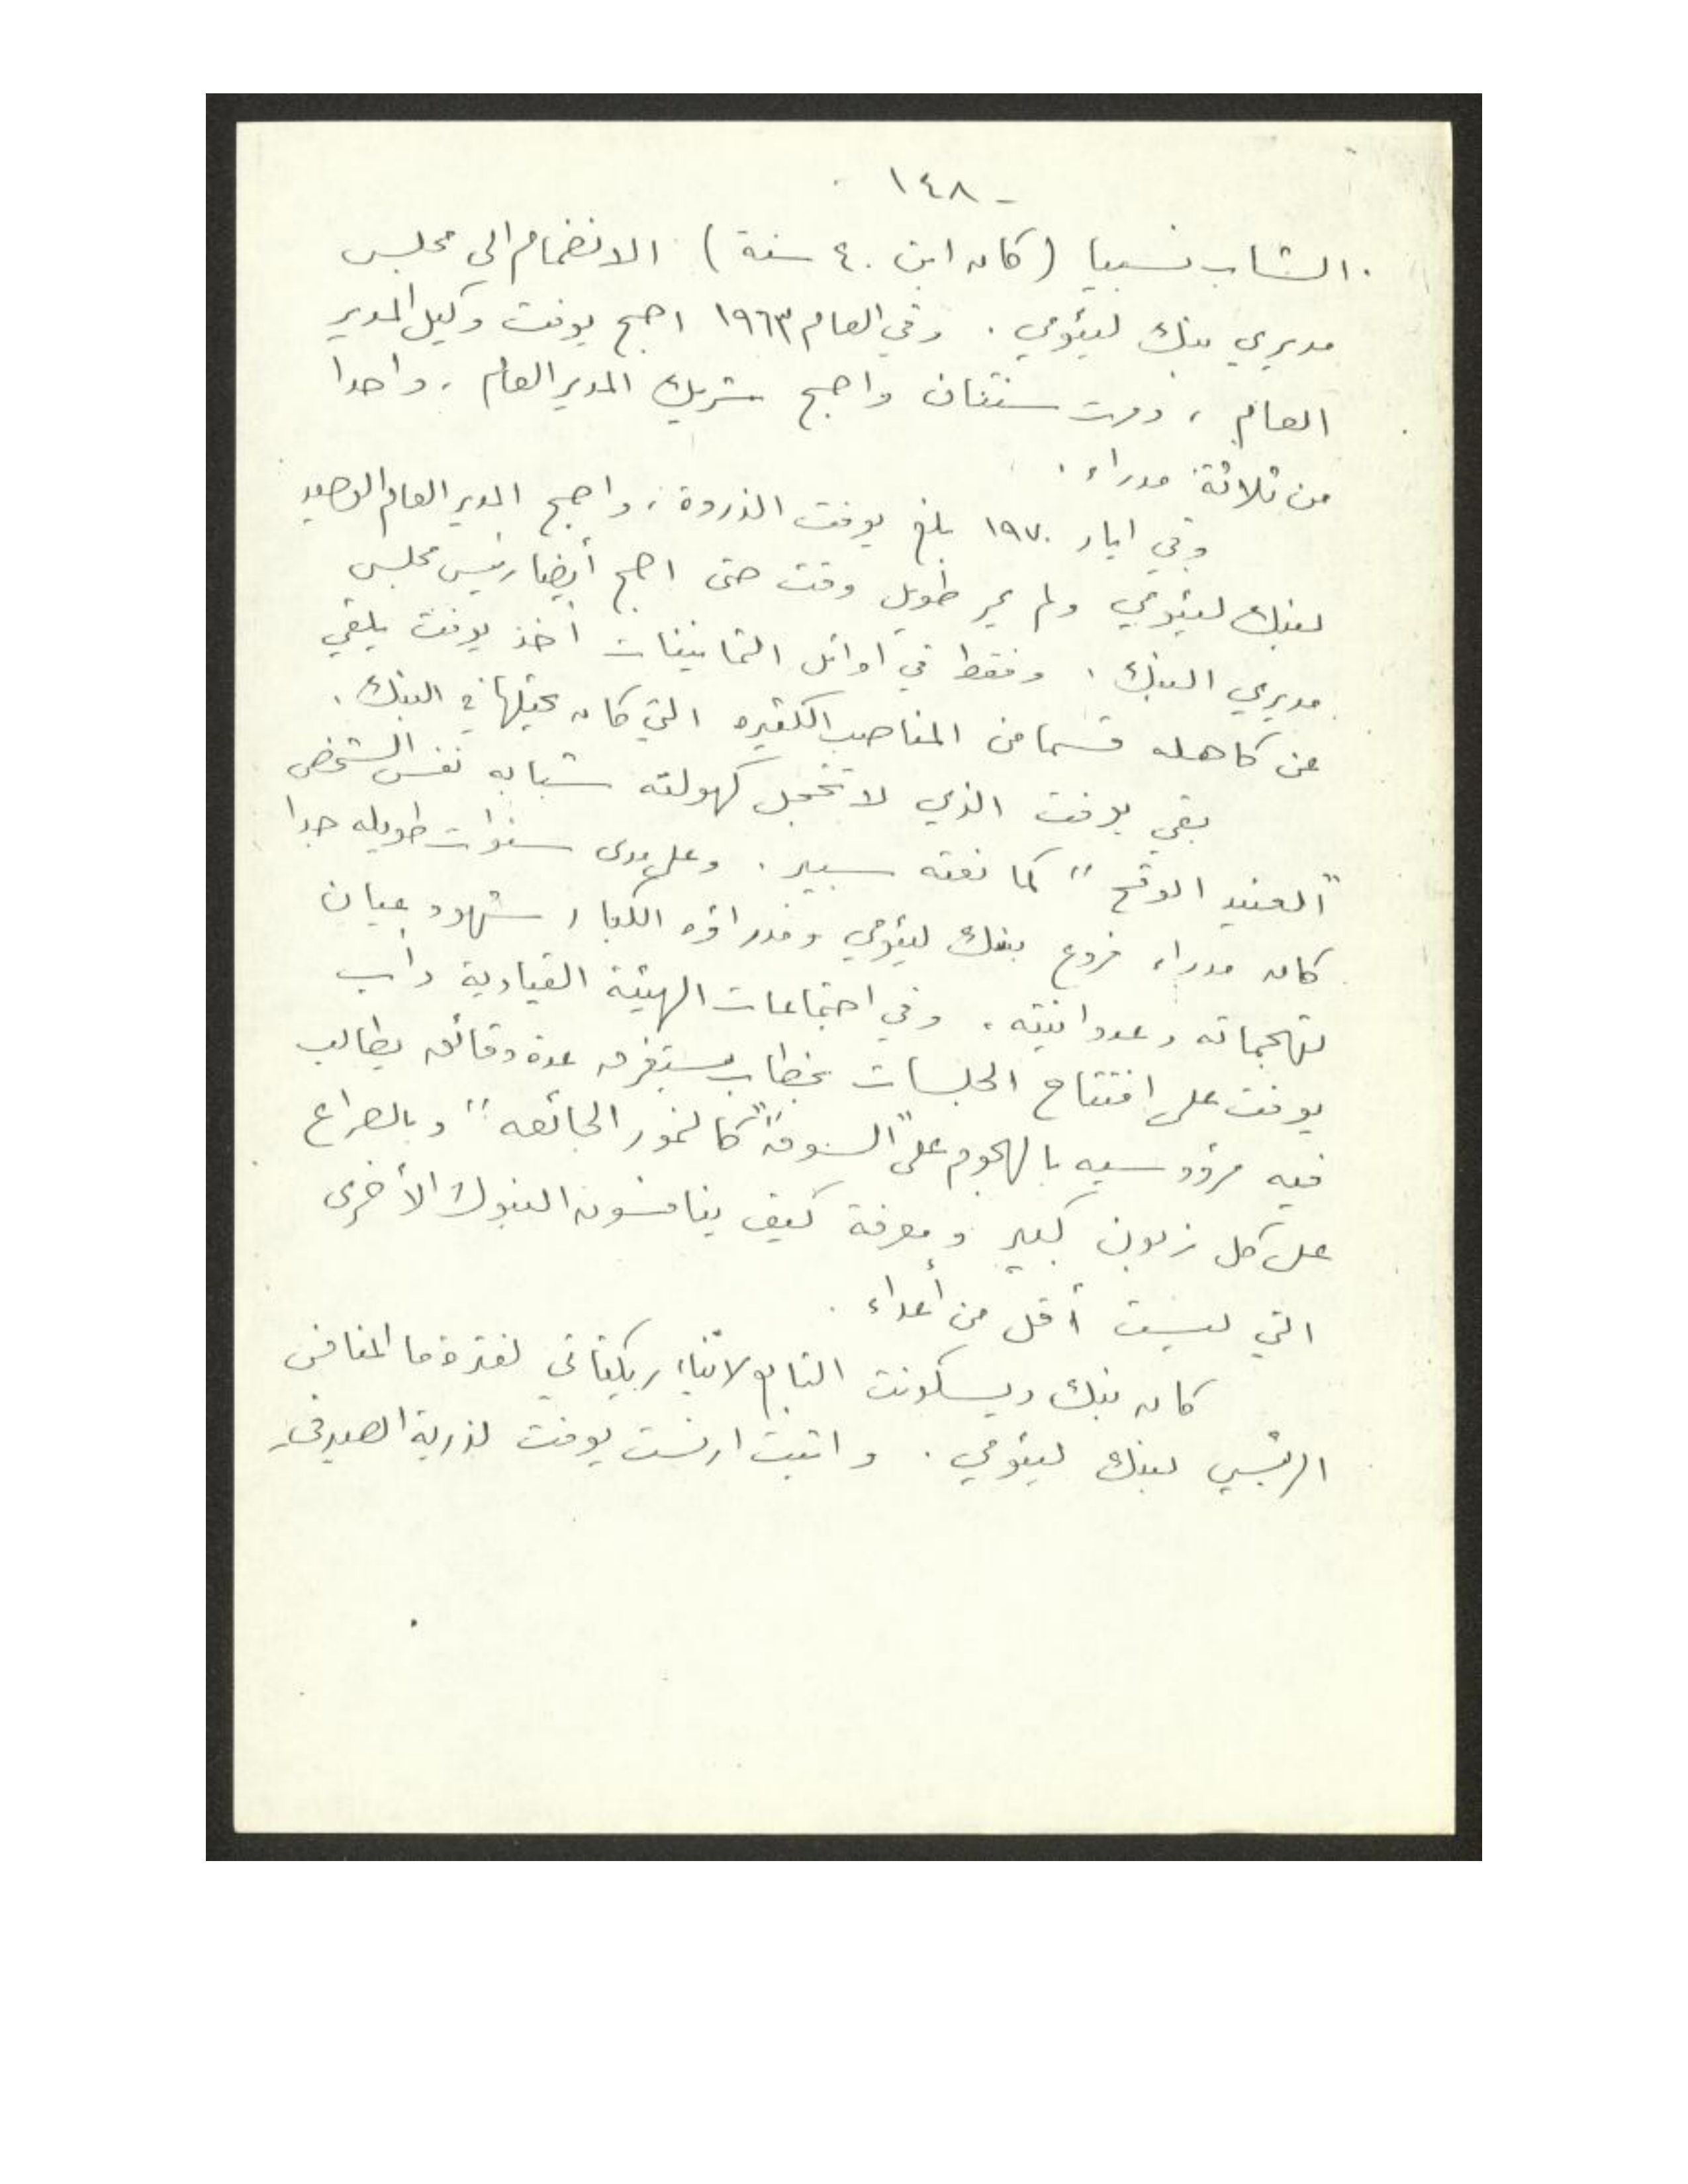 - ١٤٨ -
الشاب نسبيا (كان ابن ٤٠ سنة) الانضمام الى مجلس
مديري بنك ليئومي . وفي العام ١٩٦٣ اصبح يوفت وكيل المدير
العام ، ومرت سنتان واصبح شريك المدير العام ، واحدا
من ثلاثة مدراء .
وفي ايار ١٩٧٠ بلغ يوفت الذروة ، واصبح المدير العام الوحيد
لبنك ليئومي ولم يمر طويل وقت حتى اصبح أيضا رئيس مجلس
مديري البنك . وفقط في اوائل الثمانينات أخذ يوفت يلقي
عن كاهله قسما من المناصب الكثيره التي كان يحتلها في البنك .
بقي يوفت الذي لا تخجل كهولته شبابه نفس الشخص
"العنيد الوقح" كما نعته سبير . وعلى مدى سنوات طويله جدا
كان مدراء فروع بنك ليئومي ومدراؤه الكبار شهود عيان
لتهجماته وعدوانيته . وفي اجتماعات الهيئة القيادية دأب
يوفت على افتتاح الجلسات بخطاب يستغرق عدة دقائق يطالب
فيه مرؤوسيه بالهجوم على "السوق" "كالنمور الجائعه" وبالصراع
على كل زبون كبير ومعرفة كيف ينافسون البنوك الأخرى
التي ليست أقل من أعداء .
كان بنك ديسكونت التابع لابناء ريكناتي لفترة ما المنافس
الرئيسي لبنك ليئومي . واثبت ارنست يوفت لذرية الصيرفي